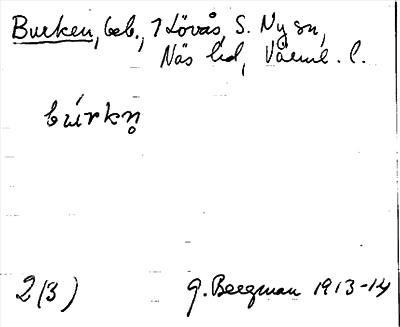 Burken, beb., 7 Lövås, S. Ny sn,
Näs hd, Värml. l.
búrkn̥
2(3) G. Bergman 1913-14